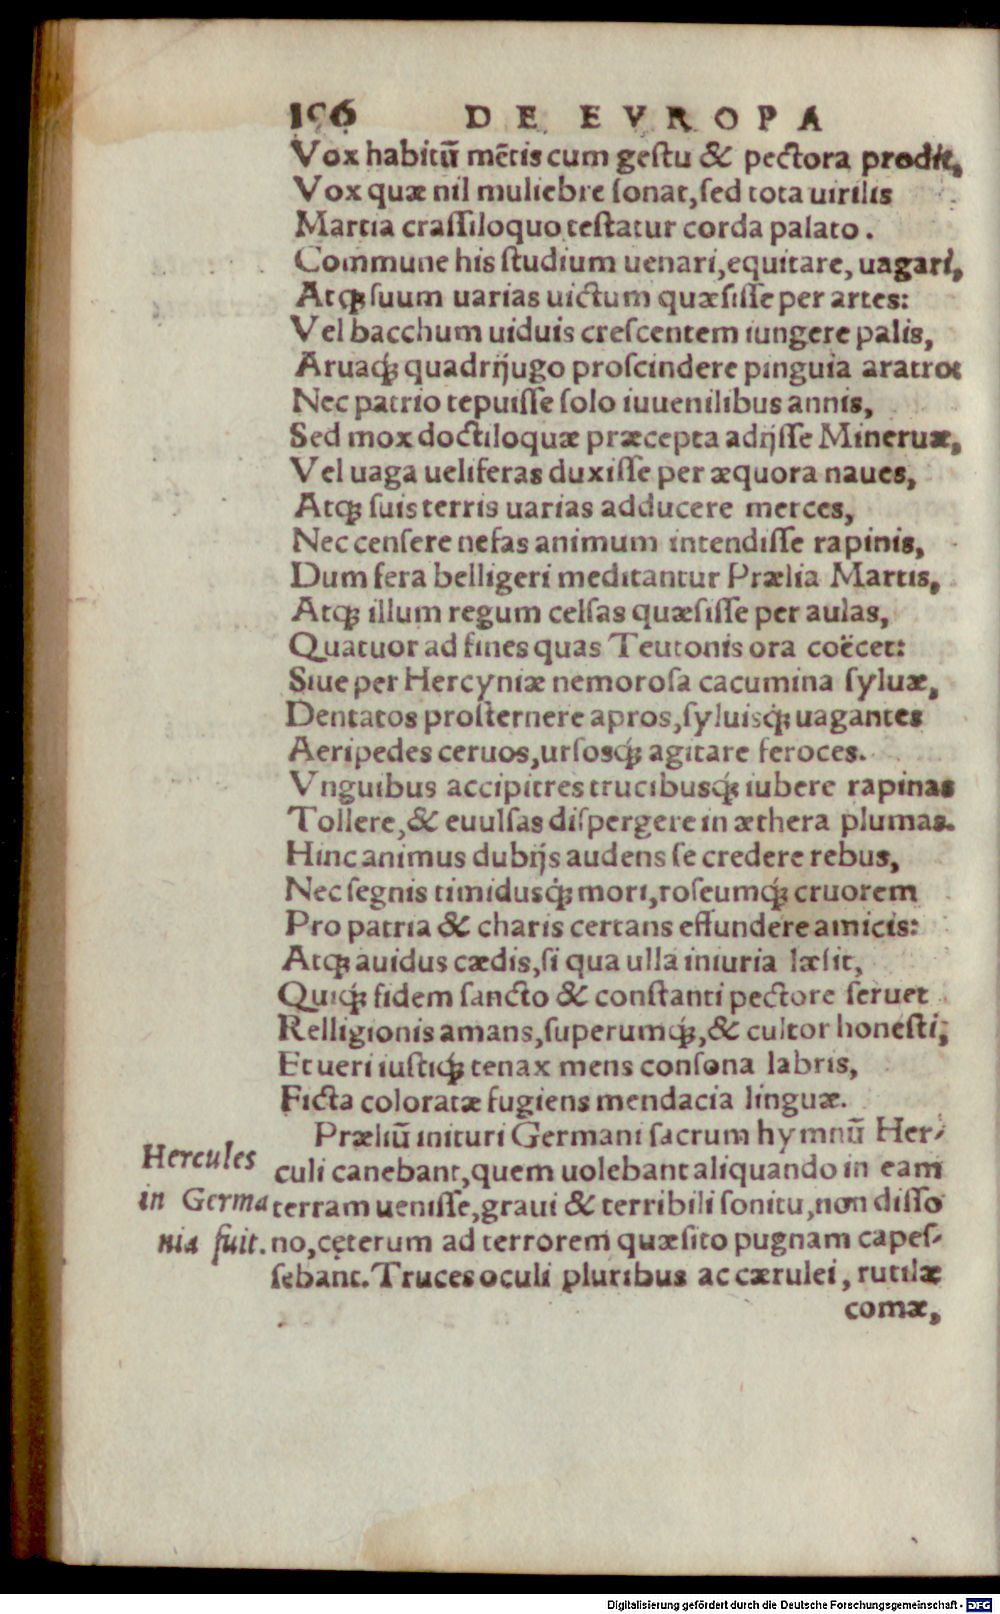 196 DE EVROPA
Vox habitū mētis cum gestu & pectora prodit,
Vox quæ nil muliebre sonat, sed tota uirilis
Martia crassiloquo testatur corda palato.
Commune his studium uenari, equitare, uagari,
Atq; suum uarias uictum quæsisse per artes:
Vel bacchum uiduis crescentem iungere palis,
Aruaq; quadrijugo proscindere pinguia aratro:
Nec patrio tepuisse solo iuuenilibus annis,
Sed mox doctiloquæ præcepta adijsse Mineruæ,
Vel uaga ueliferas duxisse per æquora naues,
Atq; suis terris uarias adducere merces,
Nec censere nefas animum intendisse rapinis,
Dum fera belligeri meditantur Prælia Martis,
Atq; illum regum celsas quæsisse per aulas,
Quatuor ad fines quas Teutonis ora coëcet:
Siue per Hercyniæ nemorosa cacumina syluæ,
Dentatos prosternere apros, syluisq́; uagantes
Aeripedes ceruos, ursosq́; agitare feroces.
Vnguibus accipitres trucibusq́; iubere rapinas
Tollere, & euulsas dispergere in æthera plumas.
Hinc animus dubijs audens se credere rebus,
Nec segnis timidusq́; mori, roseumq́; cruorem
Pro patria & charis certans effundere amicis:
Atq; auidus cædis, si qua ulla iniuria læsit,
Quiq́; fidem sancto & constanti pectore seruet
Relligionis amans, superumq́;, & cultor honesti,
Et ueri iustiq́; tenax mens consona labris,
Ficta coloratæ fugiens mendacia linguæ.
Præliū inituri Germani sacrum hymnū Her-
Hercules culi canebant, quem uolebant aliquando in eam
in Germa terram uenisse, graui & terribili sonitu, non disso
nia fuit. no, cęterum ad terrorem quæsito pugnam capes-
sebant. Truces oculi pluribus ac cærulei, rutilæ
comæ,
Digitalisierung gefördert durch die Deutsche Forschungsgemeinschaft - DFG